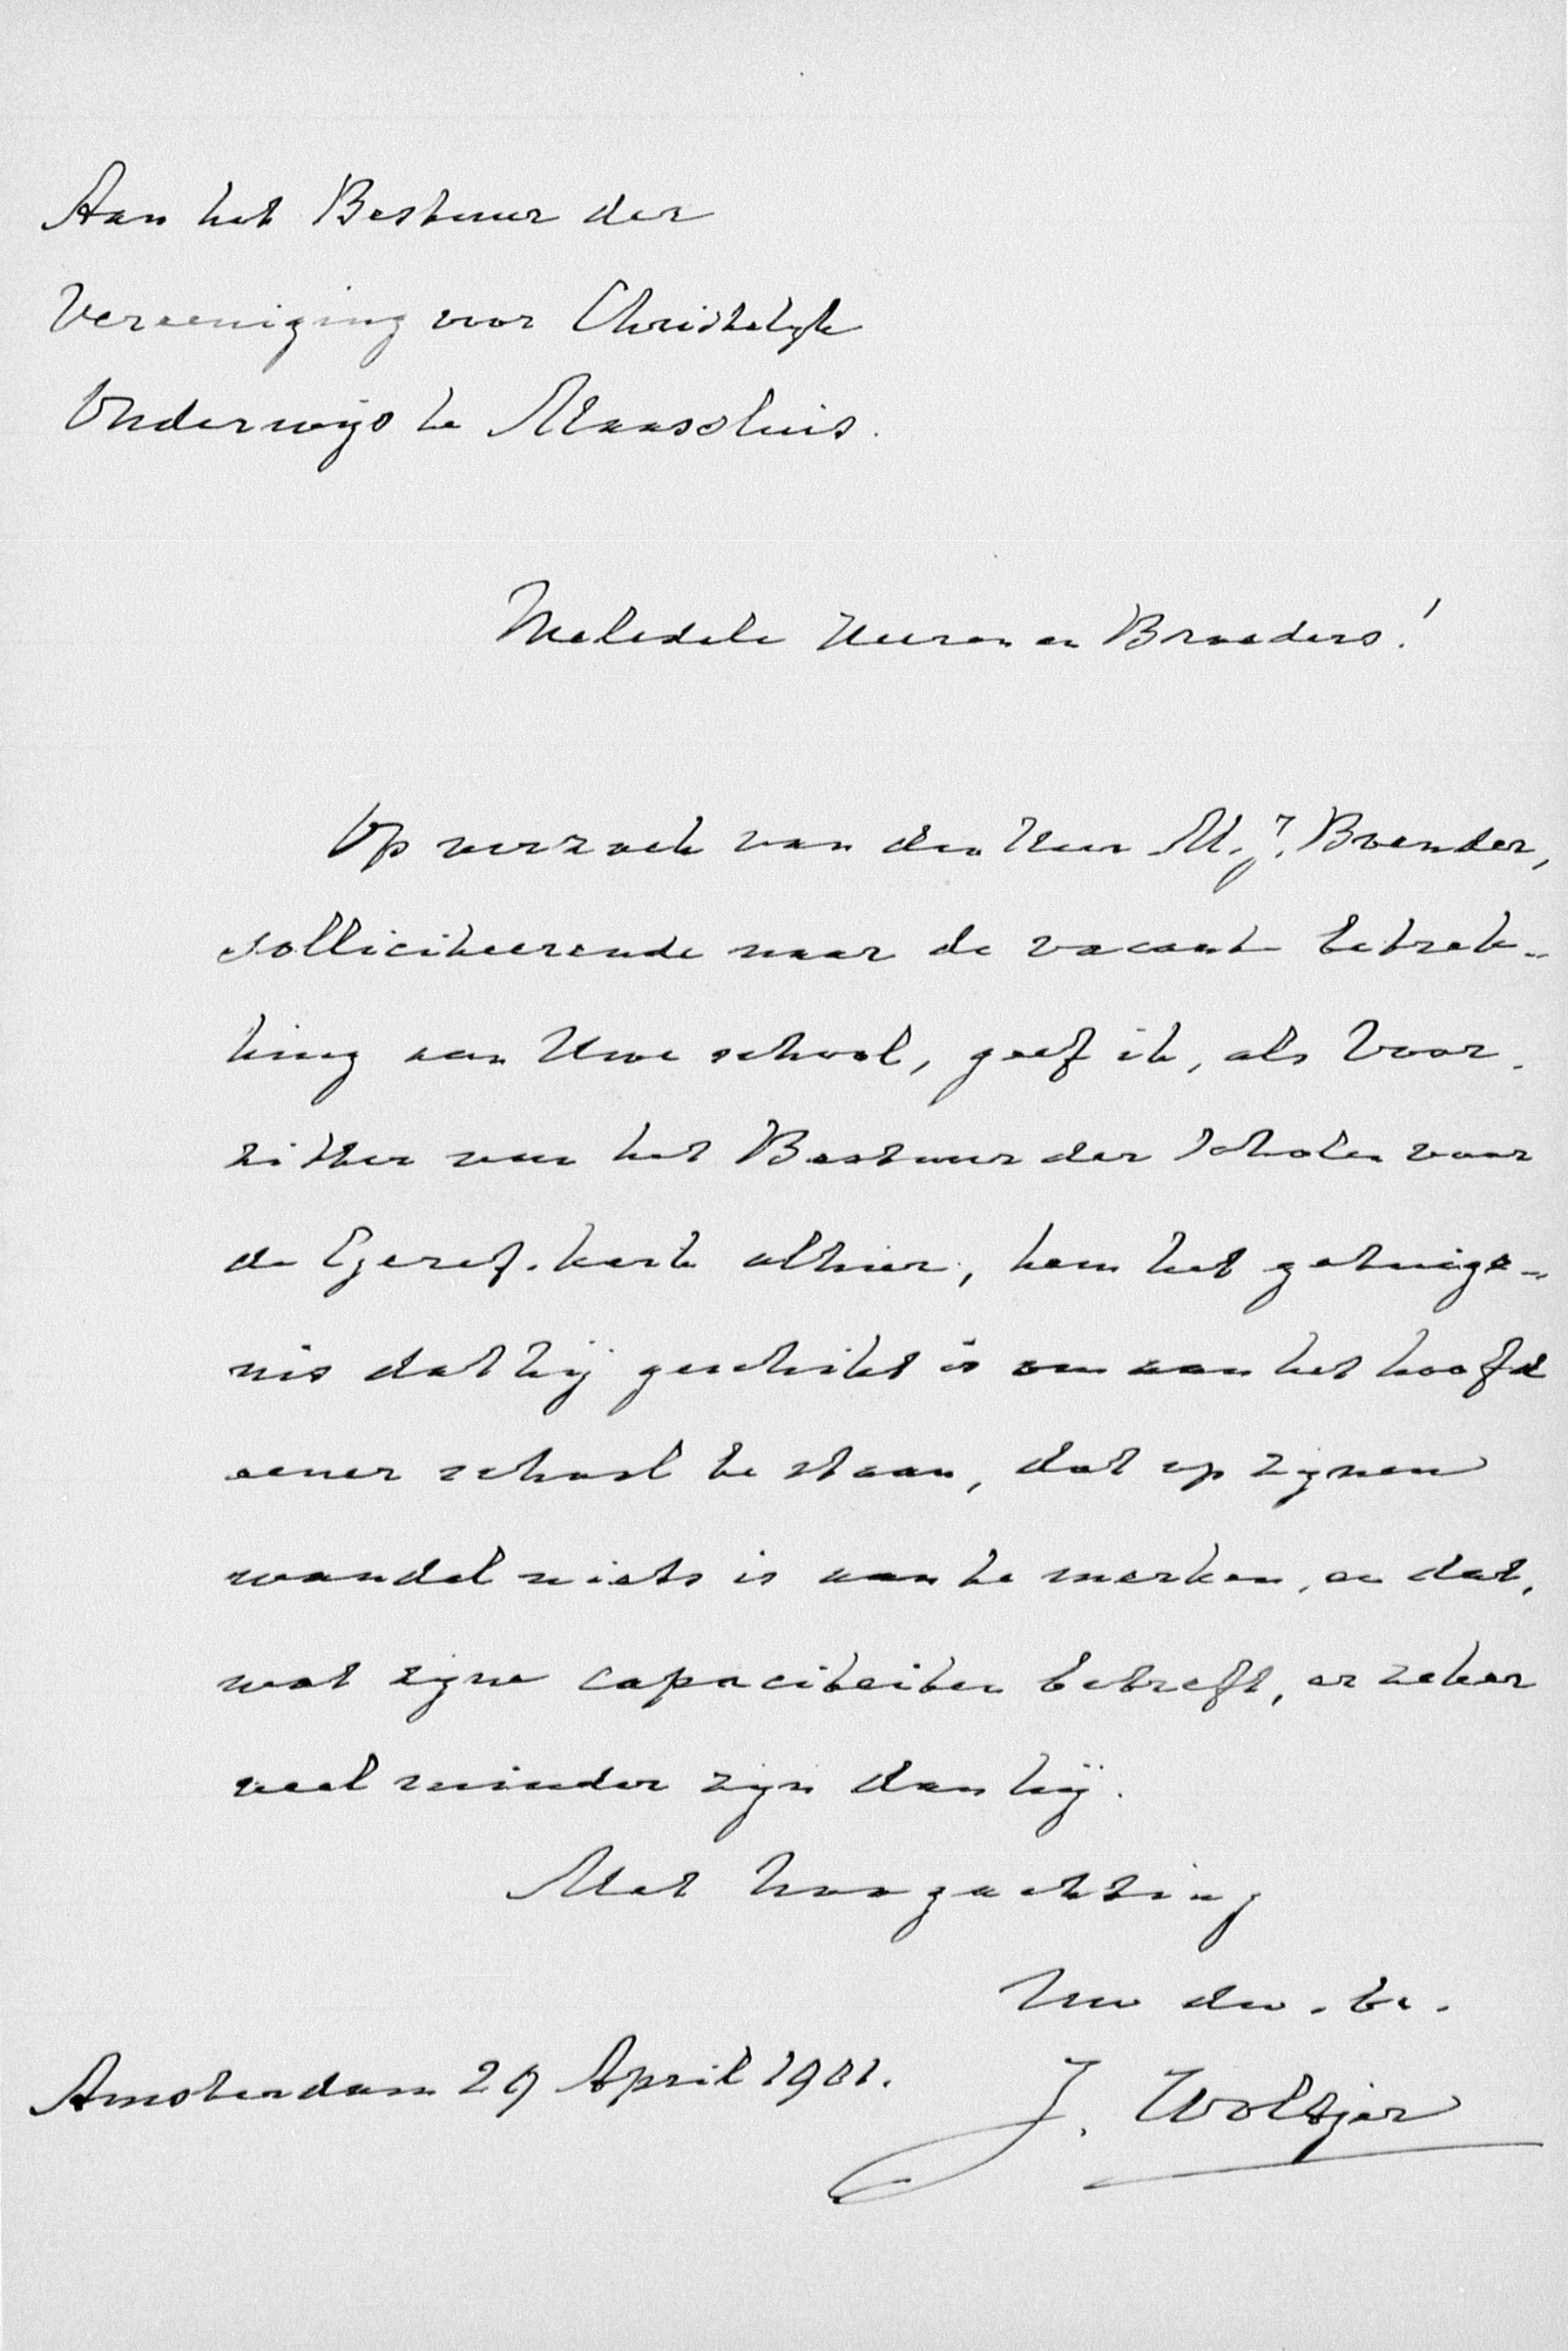 Aan het Bestuur der
Vereeniging voor Christelijk
Onderwijs te Maassluis.
Weledele Heeren en Broeders!
Op verzoek van den Heer M. J. Boender,
solliciteerende naar de vacante betrek-
king aan Uwe school, geef ik, als Voor-
zitter van het Bestuur der Scholen voor
de Geref. kerk alhier, hem het getuige-
nis dat hij geschikt is om aan het hoofd
eener school te staan, dat op zijnen
wandel niets is aan te merken, en dat,
wat zijne capaciteiten betreft, er zeker
veel minder zijn dan hij.
Met hoogachting
Uw dw. br.
Amsterdam 29 April 1901.
J. Woltjer